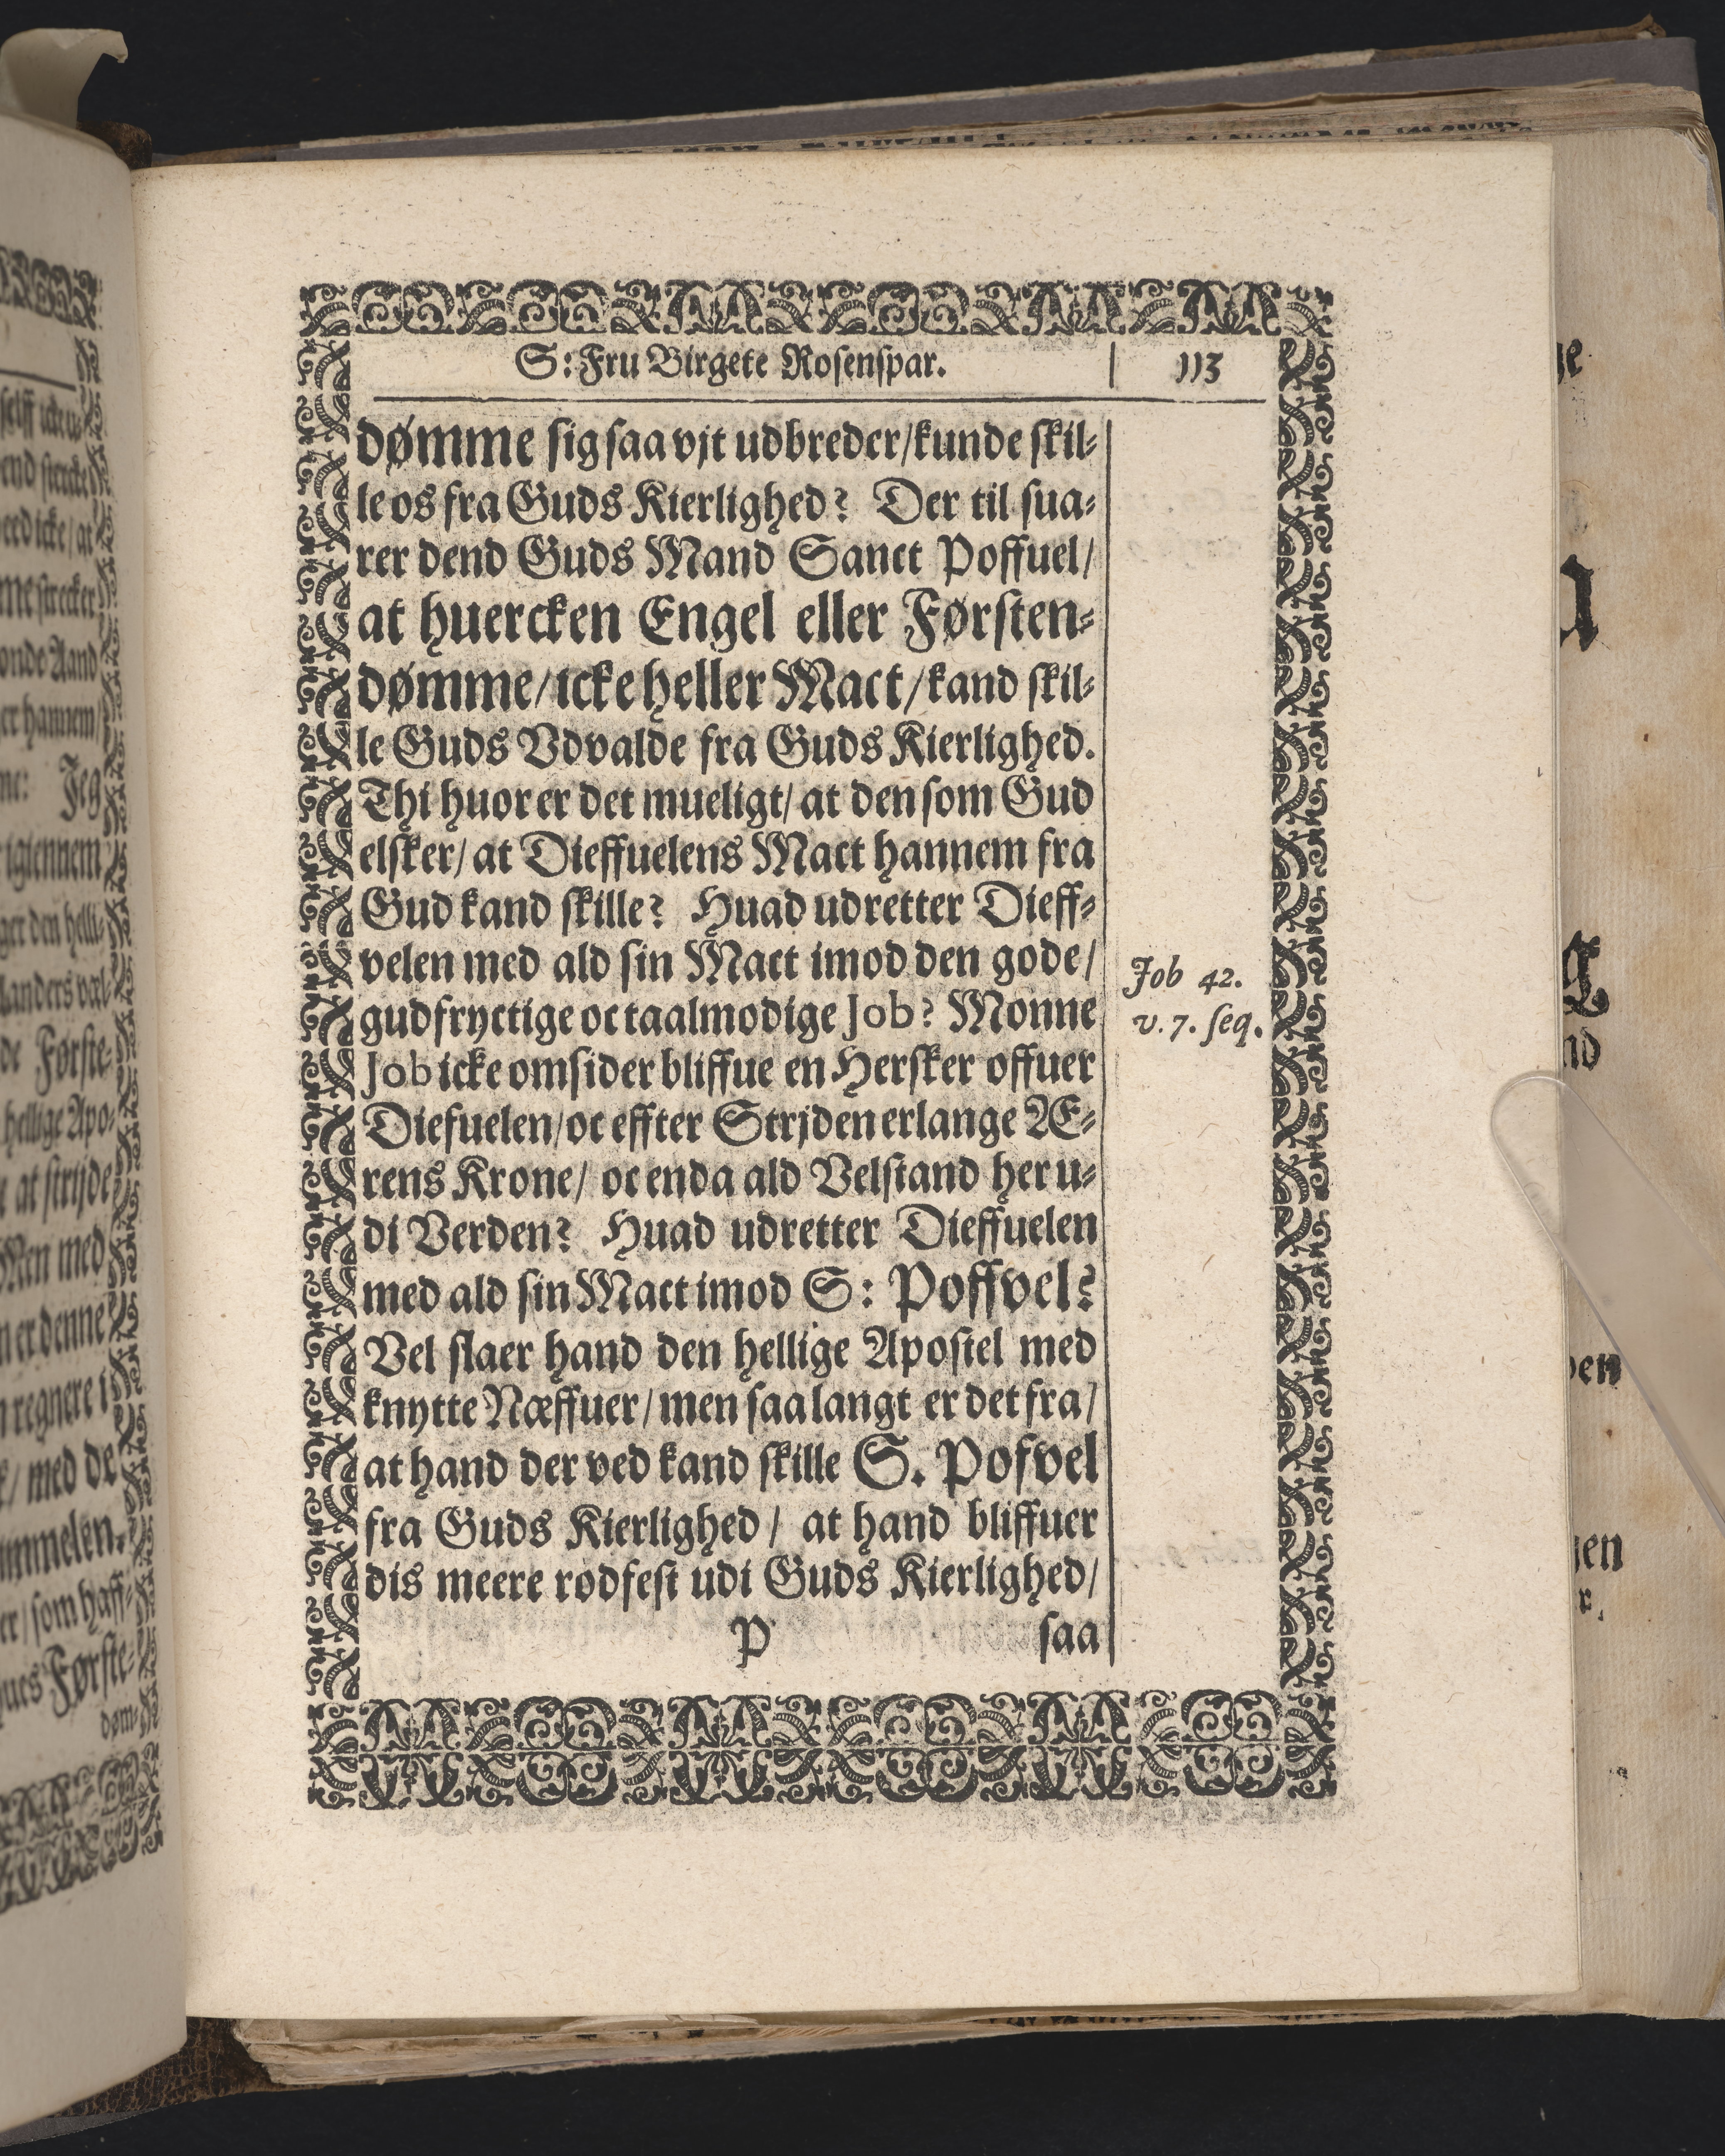 S: Fru Birgete Rosenspar. | 113
dømme sig saa vjt udbreder/kunde skil-
le os fra Guds Kierlighed? Der til sua-
rer dend Guds Mand Sanct Poffuel/
at huercken Engel eller Førsten-
dømme/icke heller Mact/kand skil-
le Guds Vdvalde fra Guds Kierlighed.
Thi huor er det mueligt/ at den som Gud
elsker/ at Dieffuelens Mact hannem fra
Gud kand skille? Huad udretter Dieff-
velen med ald sin Mact imod den gode/
gudfryctige oc taalmodige Job? Monne
Job icke omsider bliffue en Hersker offuer
Diefuelen/oc effter Strjden erlange Æ-
rens Krone/ oc enda ald Velstand her u-
di Verden? Huad udretter Dieffuelen
med ald sin Mact imod S: Poffvel?
Vel slaer hand den hellige Apostel med
knytte Næffuer/men saa langt er det fra/
at hand der ved kand skille S. Pofvel
fra Guds Kierlighed/ at hand bliffuer
dis meere rodfest udi Guds Kierlighed/
P saa
Job 42.
v. 7. seq.
end stercke
onde Aand
er hannem/
Jeg
igiennem
ger den helli-
de Første-
hellige Apo-
at strijde
Men med
er denne
regnere i
/ med de
er/som haff-
Første-
døm-